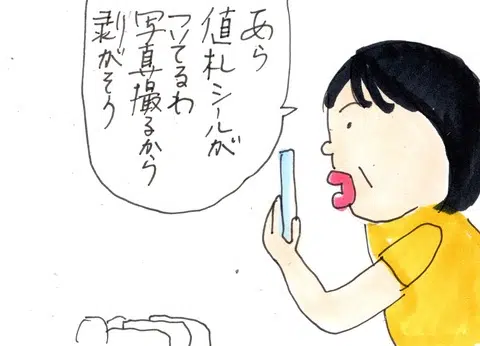 あら
値札シールが
ついてるわ
写真撮るから
剥がそう